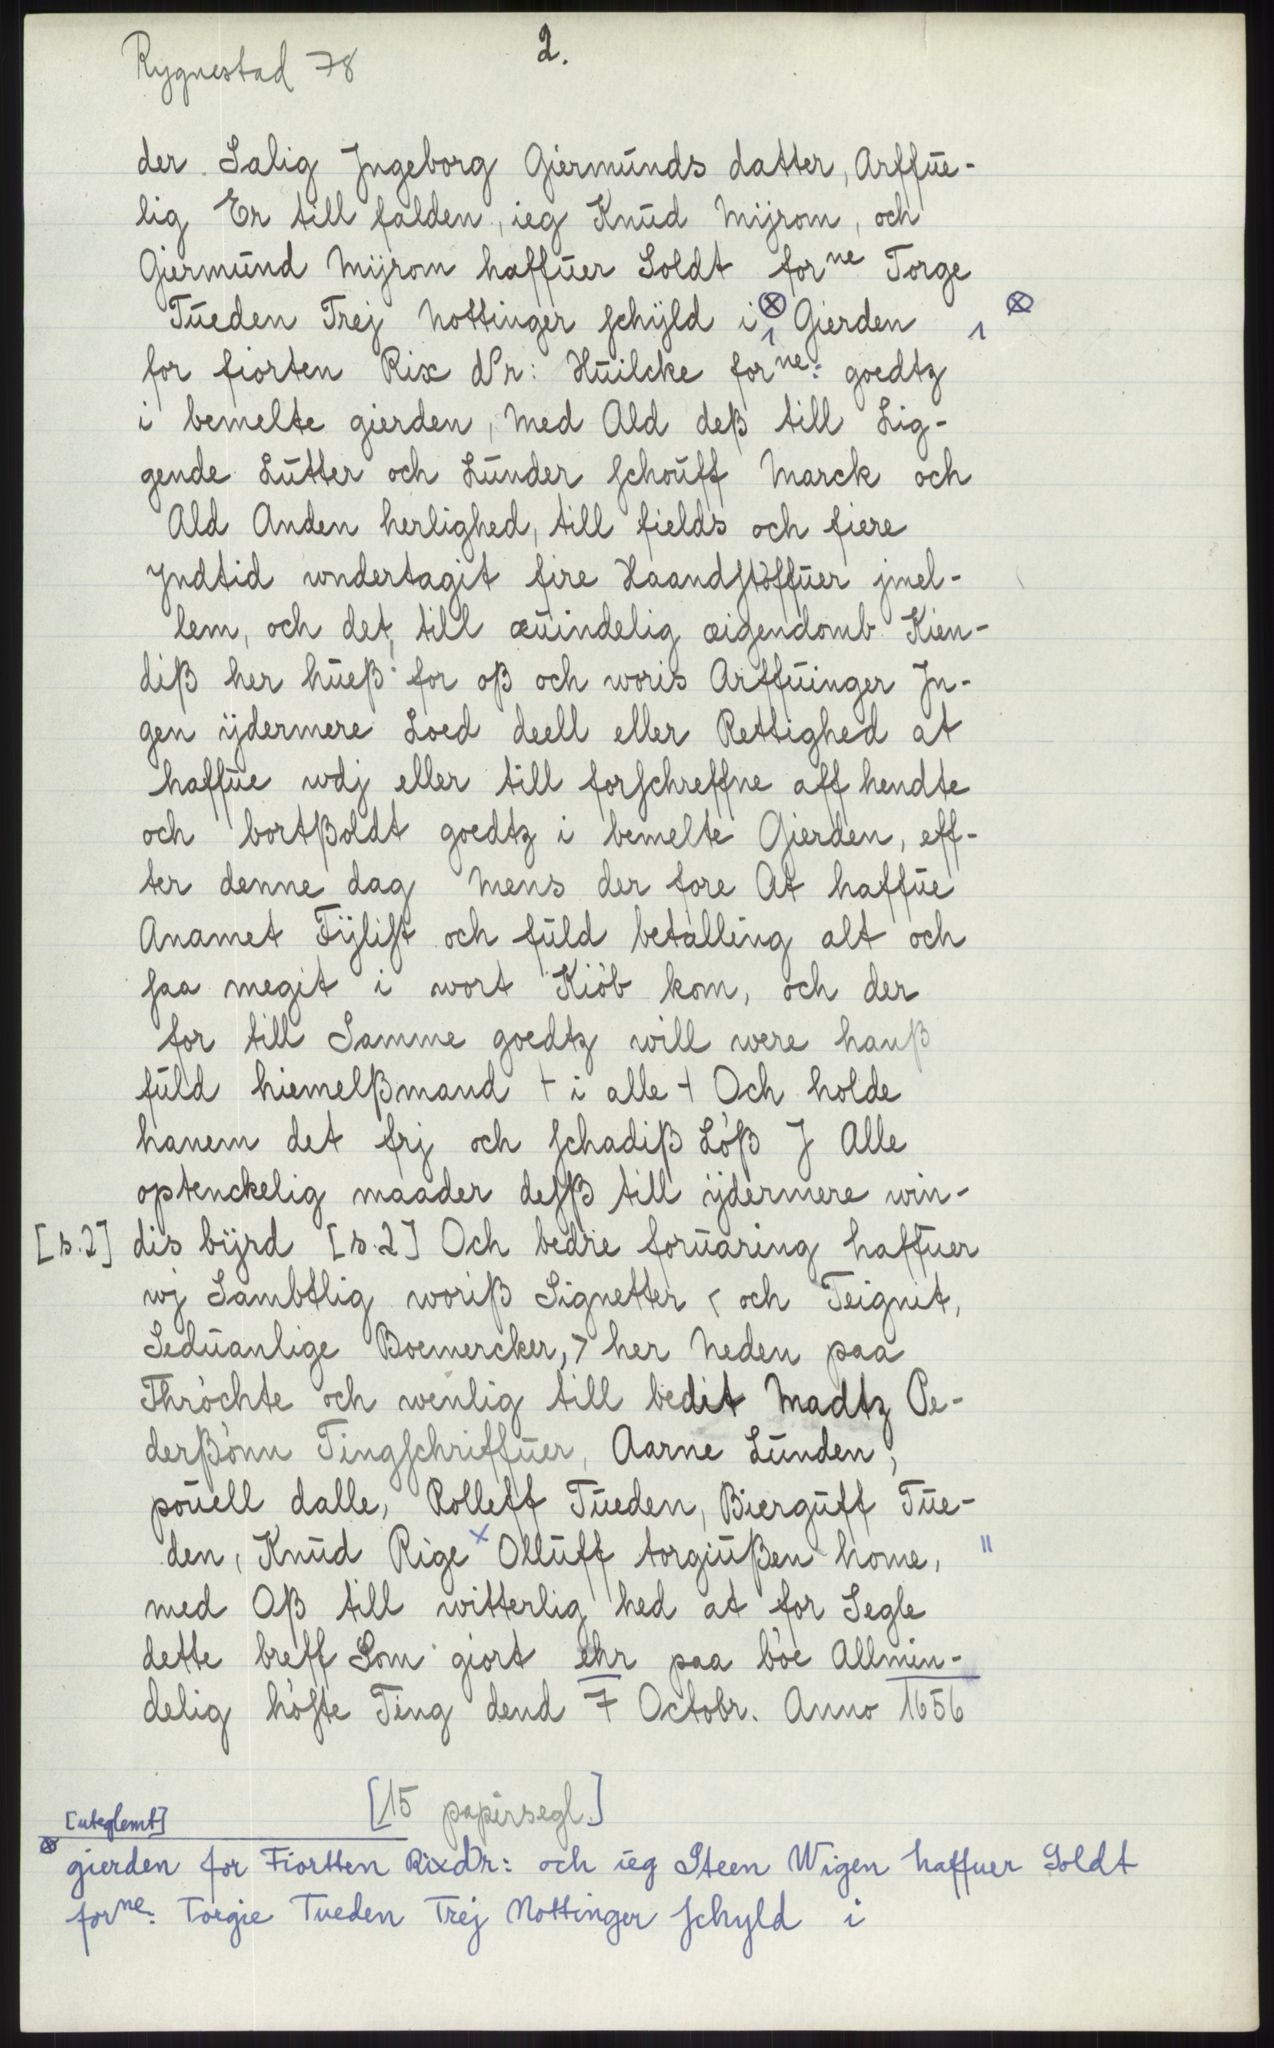 Rygnestad 78
2.
der Salig Jngeborg Giermŭnds datter, Arffŭe-
lig Er till falden, ieg Knŭd Mÿrom, och
Giermŭnd Mÿrom haffŭer Soldt forne Torge
Tŭeden Trej Nottinger schÿld i ⊗ Gierden 1 ⊗
for fiorten Rix dlr: Hŭilcke forne: goedtz
i bemelte gierden, med Ald deß till Lig-
gende Lŭtter och Lŭnder schoŭff Marck och
Ald Anden herlighed, till fields och fiere
Jndtid wndertagit fire Haandstöffŭer jmel-
lem, och det, till æŭindelig æigendomb Kien-
diß her hŭeß for oß och woris Arffŭinger Jn-
gen ÿdermere Loed deell eller Rettighed at
haffŭe wdj eller till forschreffne aff hendte
och bortßoldt goedtz i bemelte Gierden, eff-
ter denne dag Mens der fore At haffŭe
Anamet Fÿlist och fŭld betalling alt och
saa megit i wort Kiöb kom, och der
for till Samme goedtz will were hanß
fŭld hiemelßmand + i alle + Och holde
hanem det frj och schadiß Löß J Alle
optenckelig maader desß till ÿdermere win-
[s.2] dis bÿrd [s.2] Och bedre forŭaring haffŭer
wj Sambtlig woriß Signetter < och Teignit,
Sedŭanlige Boemercker, > her Neden paa
Thröchte och wenlig till bedit Madtz Pe-
derßönn Tingschriffŭer, Aarne Lŭnden,
poŭell dalle, Rolleff Tŭeden, Biergŭff Tŭe-
den, Knŭd Rige x Ollŭff torgiŭßen home, "
med Oß till witterlig hed at for Segle
dette breff Som giort ehr paa böe Allmin-
delig höste Ting dend 7 Octobr. Anno 1656
[15 papirsegl.]
[uteglemt]
⊗ gierden for Fiortten Rixdlr: och ieg Steen Wigen haffuer Soldt
forne: Torgie Tueden Trej Nottinger schyld i